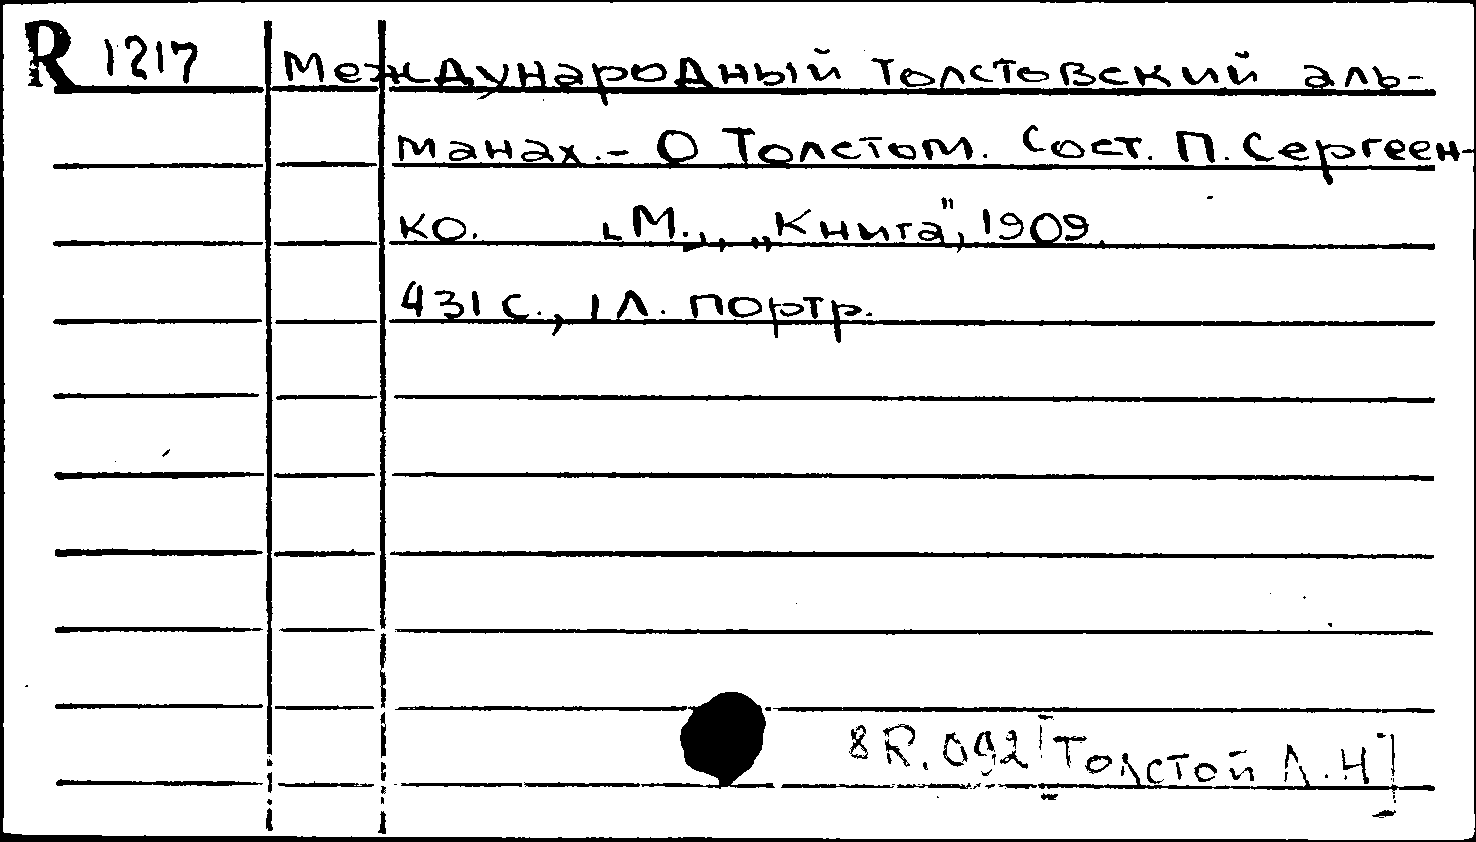 R 1217 Международный толстовский аль-
манах.- О Толстом. Сост. П. Сергеен-
ко. М., „Книга", 1909.
431 с., 1 л. портр.
8R.092[Толстой Л.Н]